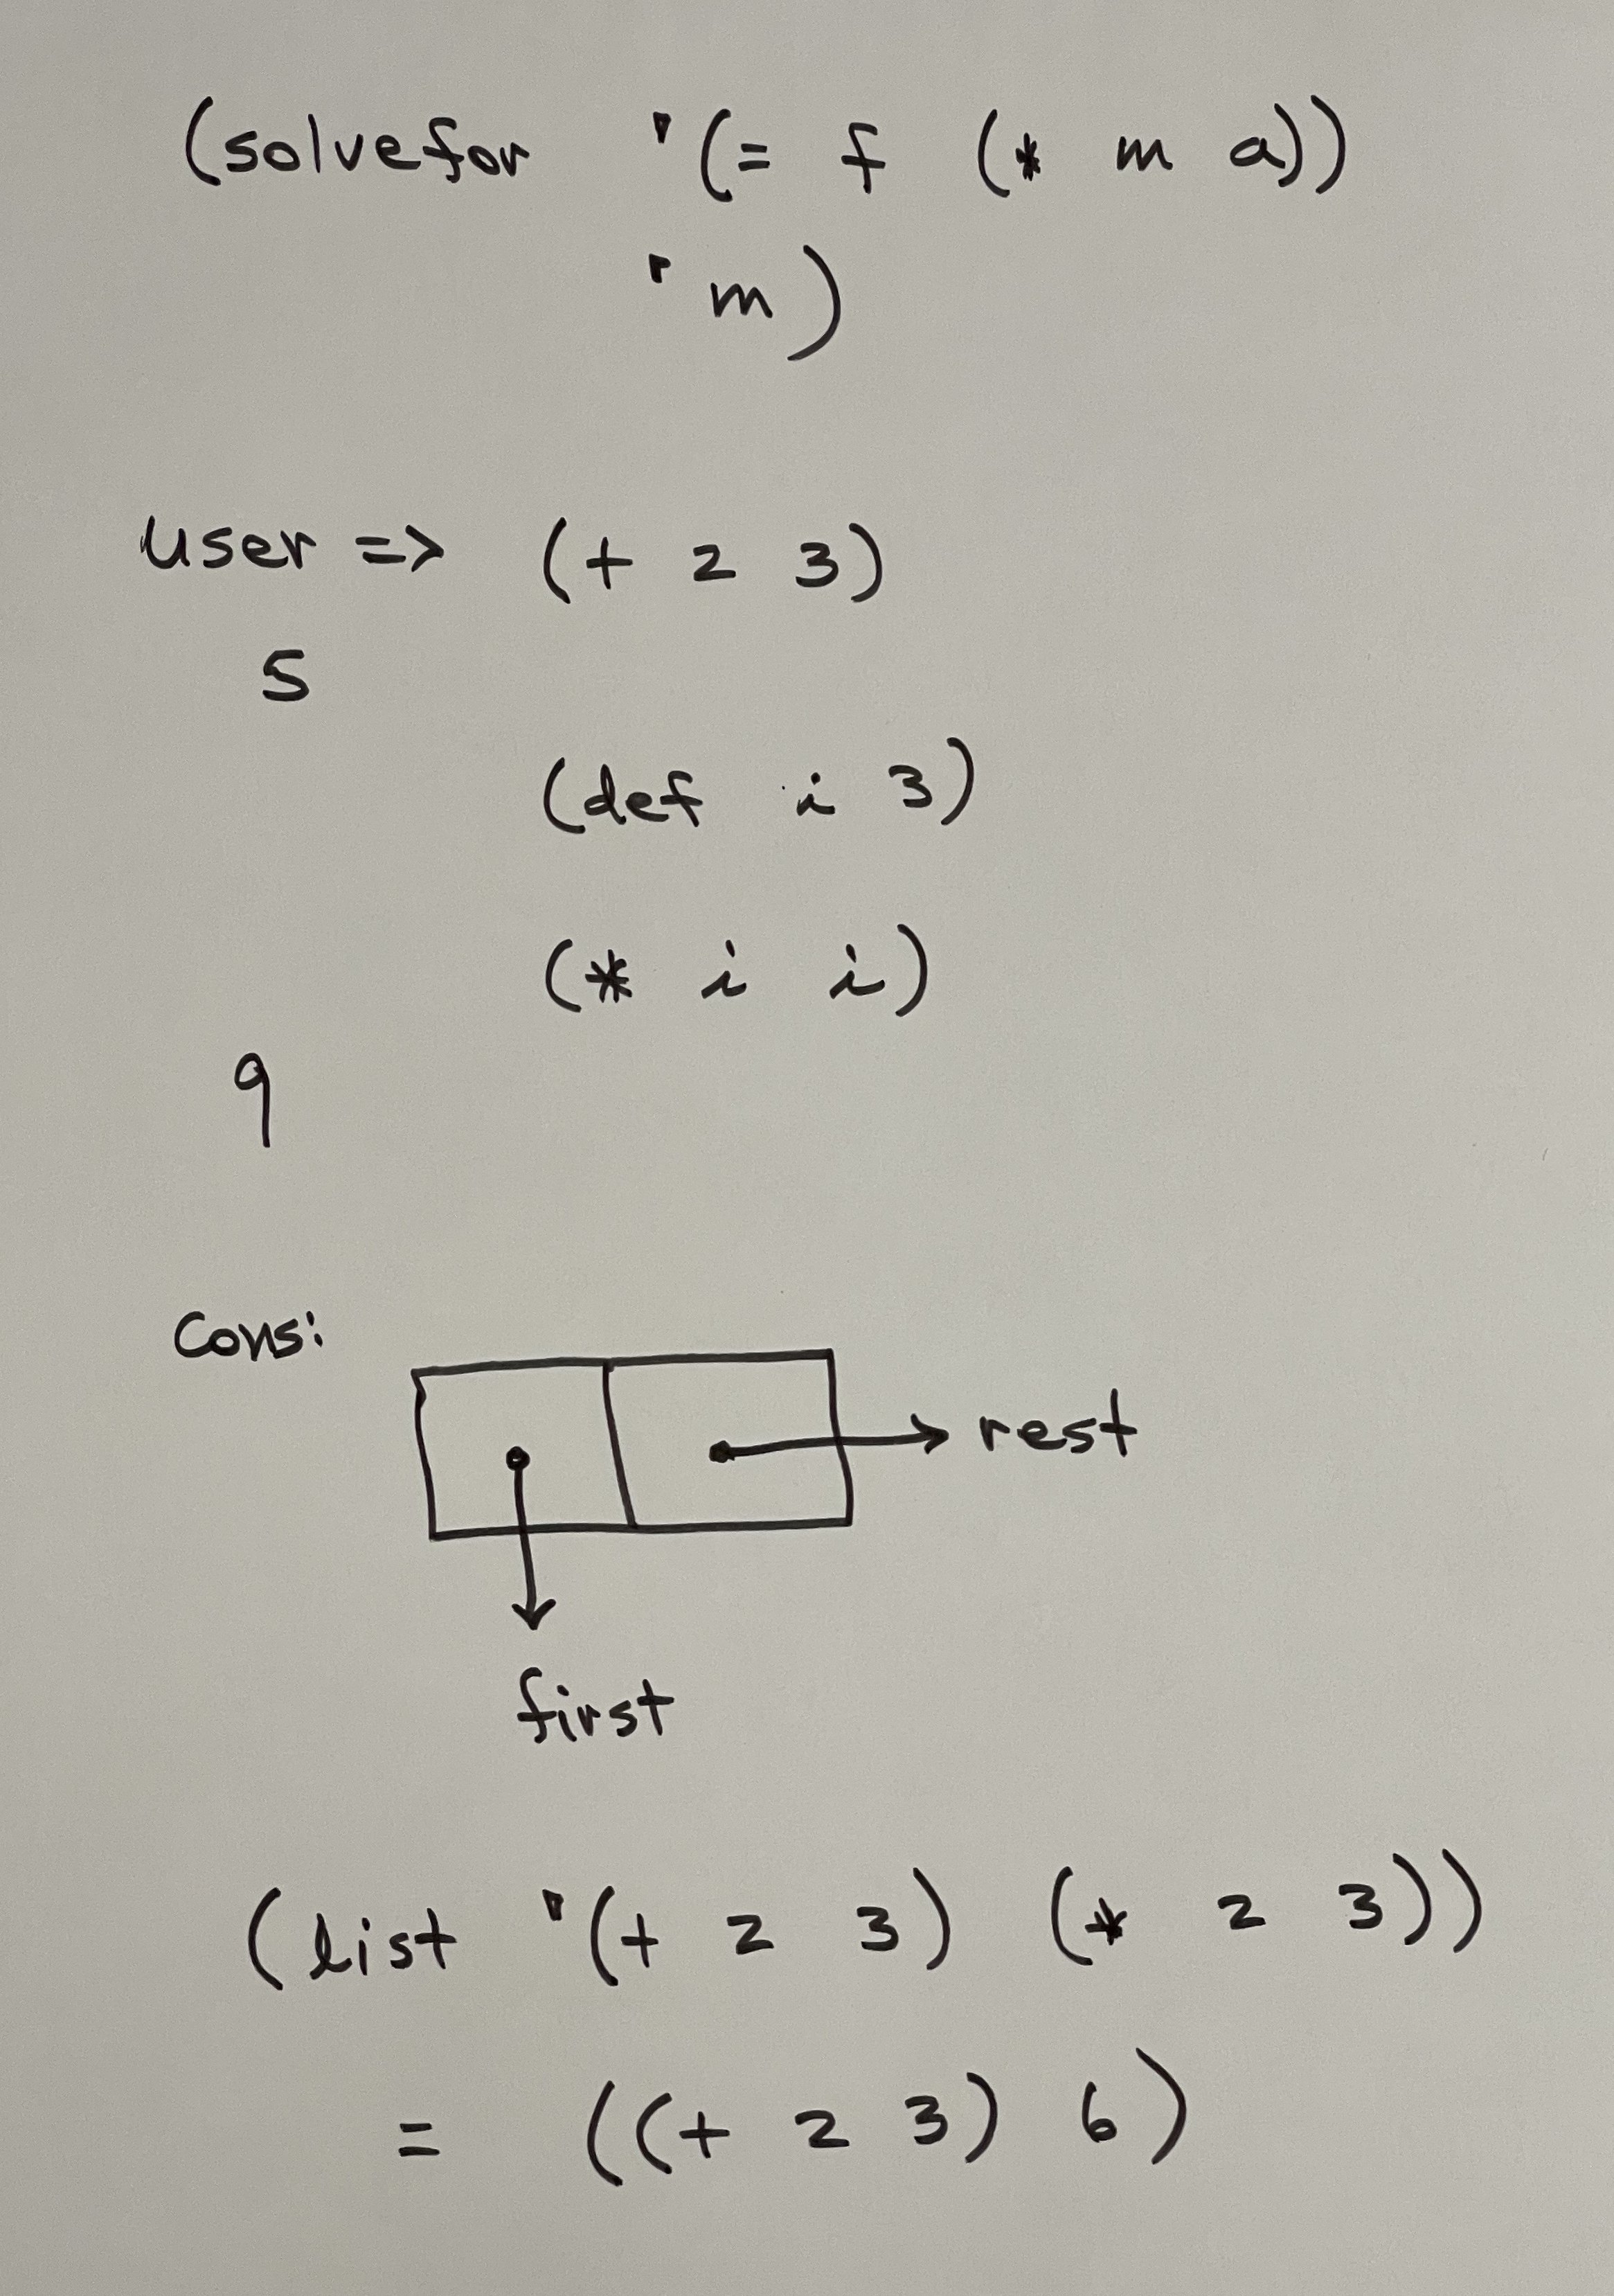 (solvefor '(= f (* m a))
'm)
user => (+ 2 3)
5
(def i 3)
(* i i)
9
Cons:
rest
first
(list '(+ 2 3) (* 2 3))
= ((+ 2 3) 6)